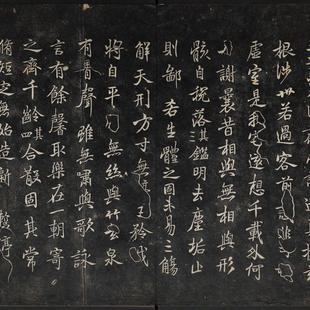 根涉世若過客前識非
虛室是我宅遠想千載外何
謝曩昔相與無相與形
骸自脫落其鑑明去塵垢止
則鄙吝生體之固未易三觴
解天刑方寸無停主矜伐
將自平雖無絲與竹玄泉
有清聲雖無嘯與歌詠
言有餘馨取樂在一朝寄
之齊千齡其四合散固其常
脩短定無始造新